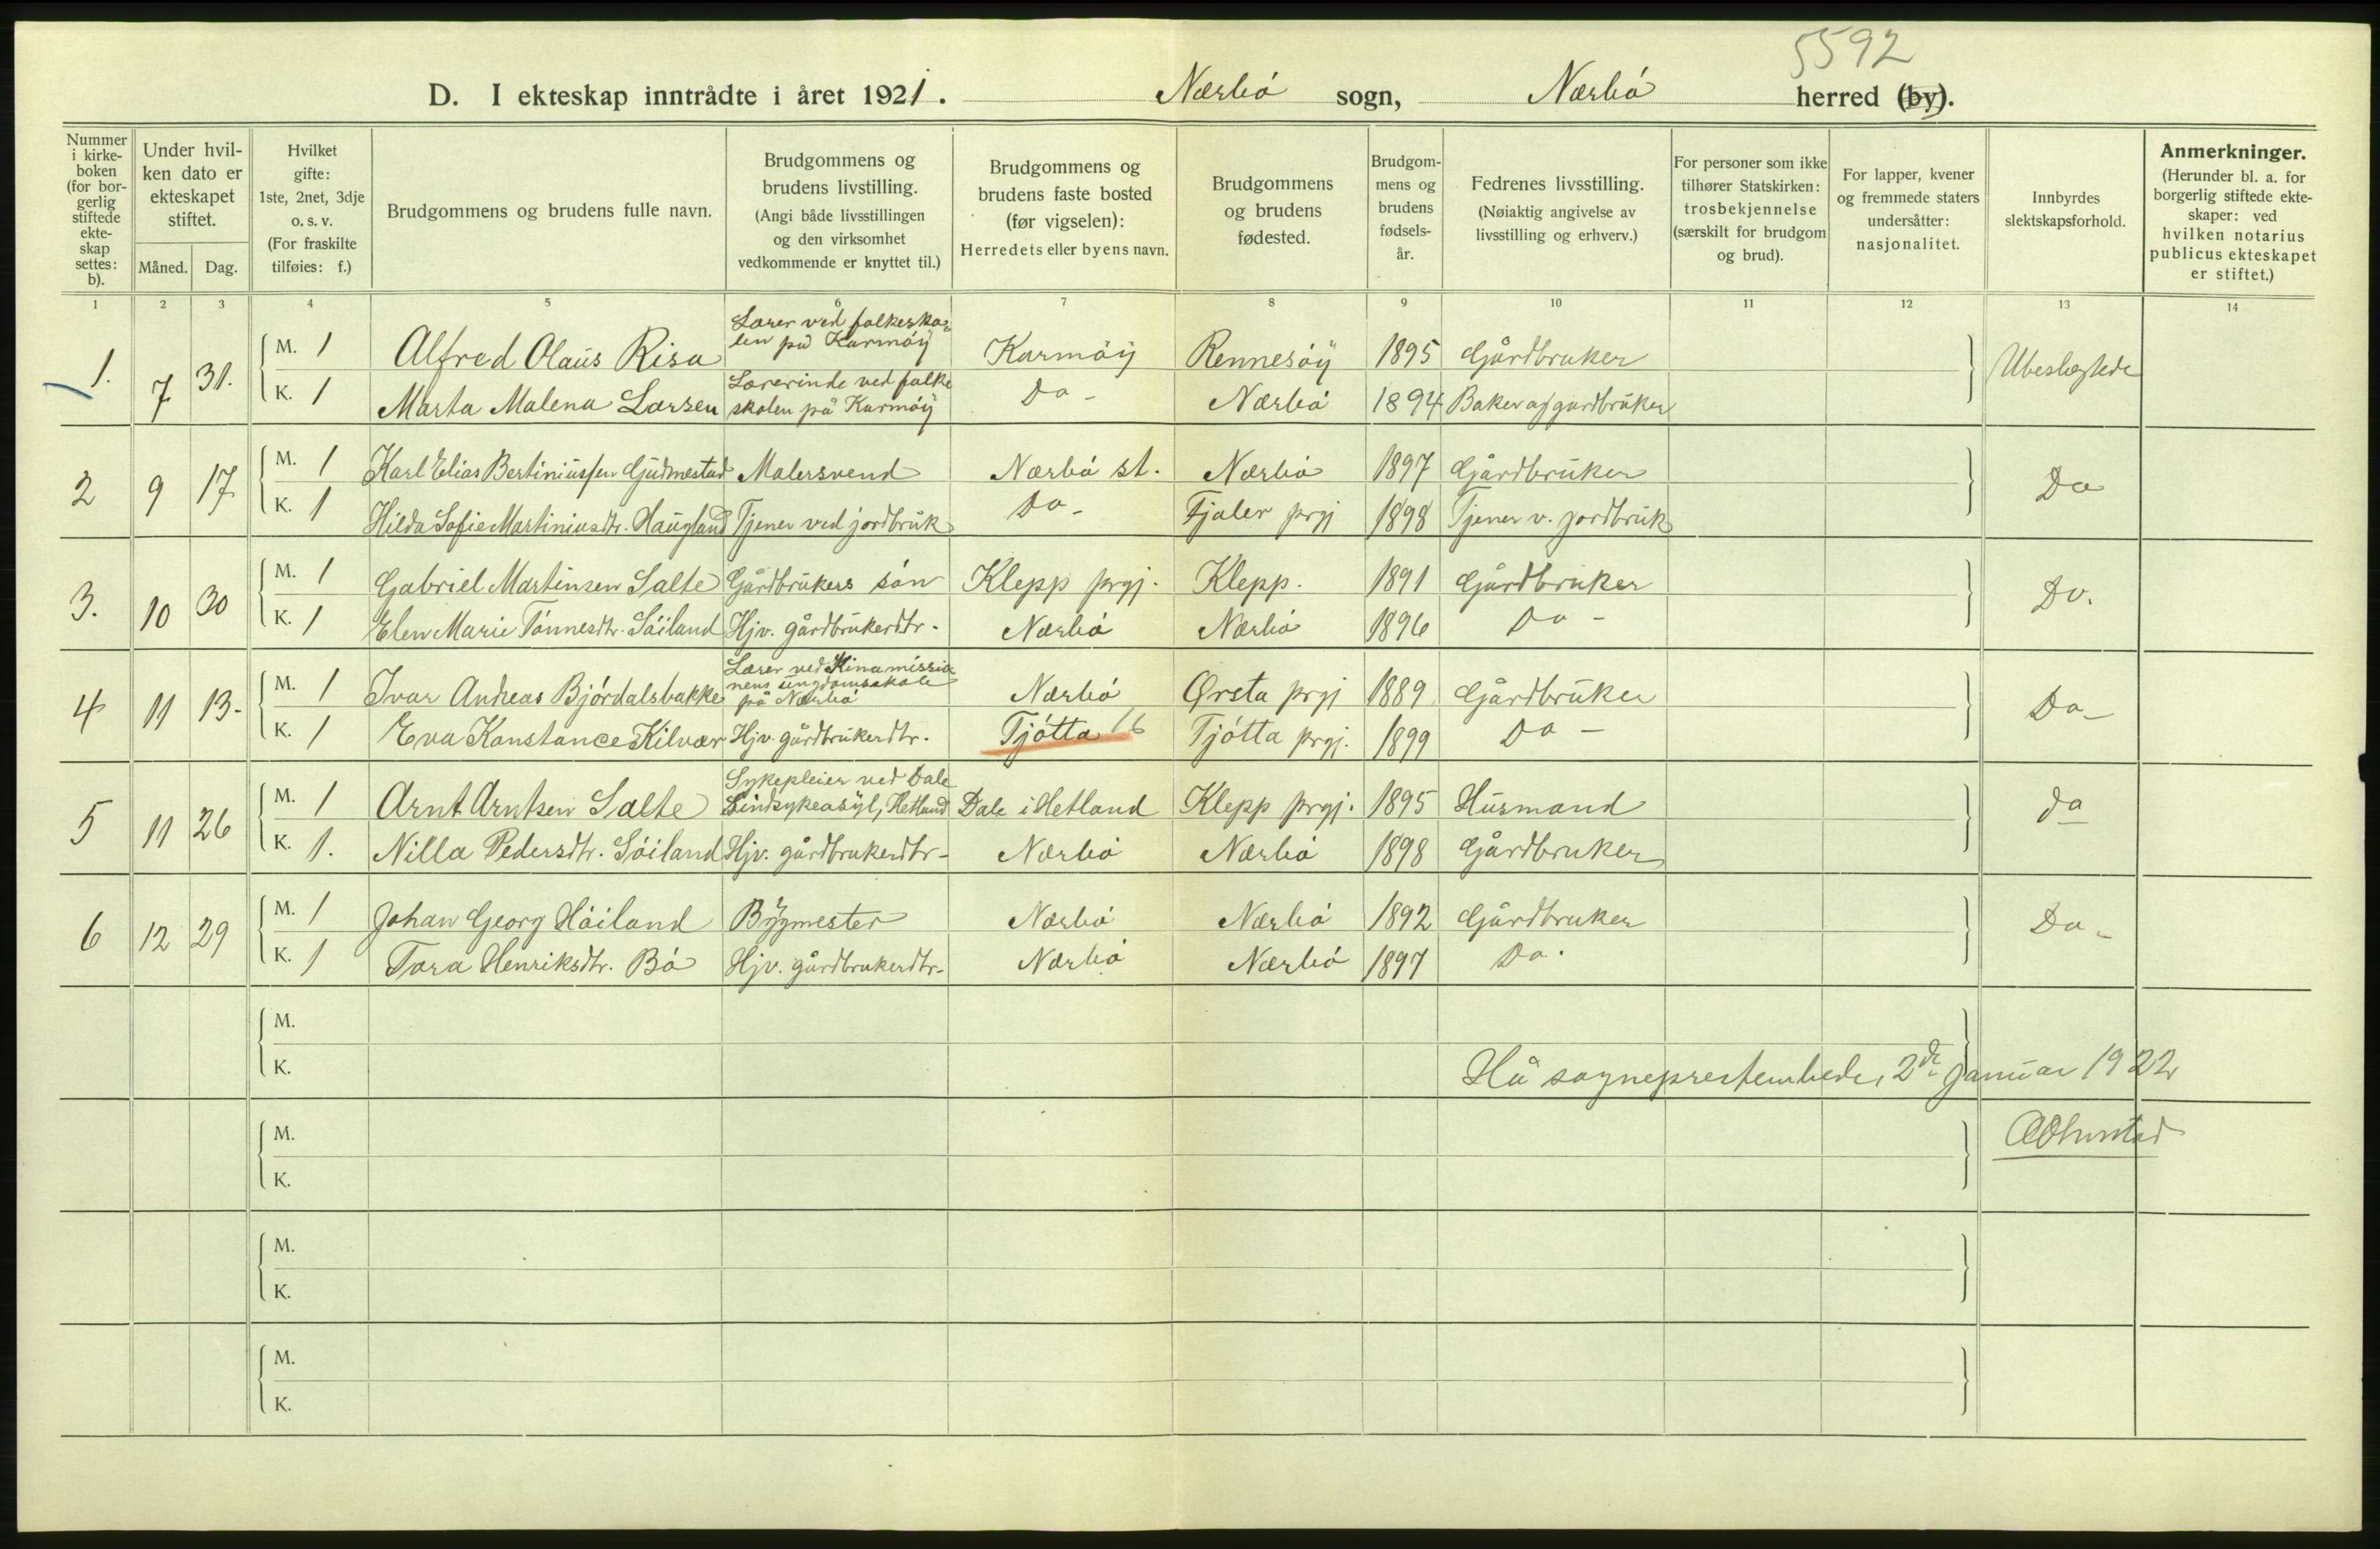 5592
D. I ekteskap inntrådte i året 1921. Nærbó sogn, Nærbó herred (by).
Nummer i kirke-boken (for bor-gerlig stiftede ekte-skap settes: b).
Under hvil-ken dato er ekteskapet stiftet.
Måned. Dag.
Hvilket gifte: 1ste, 2net, 3dje o. s. v. (For fraskilte tilføies: f.)
Brudgommens og brudens fulle navn.
Brudgommens og brudens livstilling. (Angi både livsstillingen og den virksomhet vedkommende er knyttet til.)
Brudgommens og brudens faste bosted (før vigselen): Herredets eller byens navn.
Brudgommens og brudens fødested.
Brudgom-mens og brudens fødsels-år.
Fedrenes livsstilling. (Nøiaktig angivelse av livsstilling og erhverv.)
For personer som ikke tilhører Statskirken: trosbekjennelse (særskilt for brudgom og brud).
For lapper, kvener og fremmede staters undersåtter: nasjonalitet.
Innbyrdes slektskapsforhold.
Anmerkninger. (Herunder bl. a. for borgerlig stiftede ekte-skaper: ved hvilken notarius publicus ekteskapet er stiftet.)
1 2 3 4 5 6 7 8 9 10 11 12 13 14
1. 7 31. M. 1 Alfred Olaus Risa Lærer ved folkesko-len på Karmöy Karmöy Rennesöy 1895 Gårdbruker Ubeslegtede
K. 1 Marta Malena Larsen Lærerinde ved folke skolen på Karmöy Do- Nærbó 1894 Baker og gardbruker
2 9 17 M. 1 Karl Elias Bertiniussen Gudmestad Malersvend Nærbó st. Nærbó 1897 Gårdbruker Do
K. 1 Hilda Sofie Martiniusdtr. Haugland Tjener ved jordbruk Do- Fjaler prgj 1898 Tjener v. jordbruk
3. 10 30 M. 1 Gabriel Martinsen Salte Gårdbrukers sön Klepp prgj. Klepp. 1891 Gårdbruker Do.
K. 1 Elen Marie Tönnesdtr. Söiland Hjv. gårdbrukerdtr. Nærbó Nærbó 1896 Do-
4 11 13- M. 1 Ivar Andreas Bjórdalsbakke Lærer ved Kinamissio nens ungdomsskole på Nærbó Nærbó Ørsta prgj 1889 Gårdbruker Do-
K. 1 Eva Konstance Kilvær Hjv. gårdbrukerdtr. Tjótta 16 Tjótta prgj. 1899 Do-
5 11 26 M. 1 Arnt Arntsen Salte Sykepleier ved Dale Sindsykeasyl, Hetland Dale i Hetland Klepp prgj. 1895 Husmand do
K. 1. Nilla Pedersdtr. Söiland Hjv. gårdbrukerdtr- Nærbó Nærbó 1898 Gårdbruker
6 12 29 M. 1 Johan Georg Höiland Bygmester Nærbó Nærbó 1892 Gårdbruker Do-
K. 1 Tora Henriksdtr. Bö Hjv. gårdbrukerdtr- Nærbó Nærbó 1897 Do.
M.
K.
Hå sogneprestembede, 2de Januar 1922
M.
K.
M.
K.
M.
K.